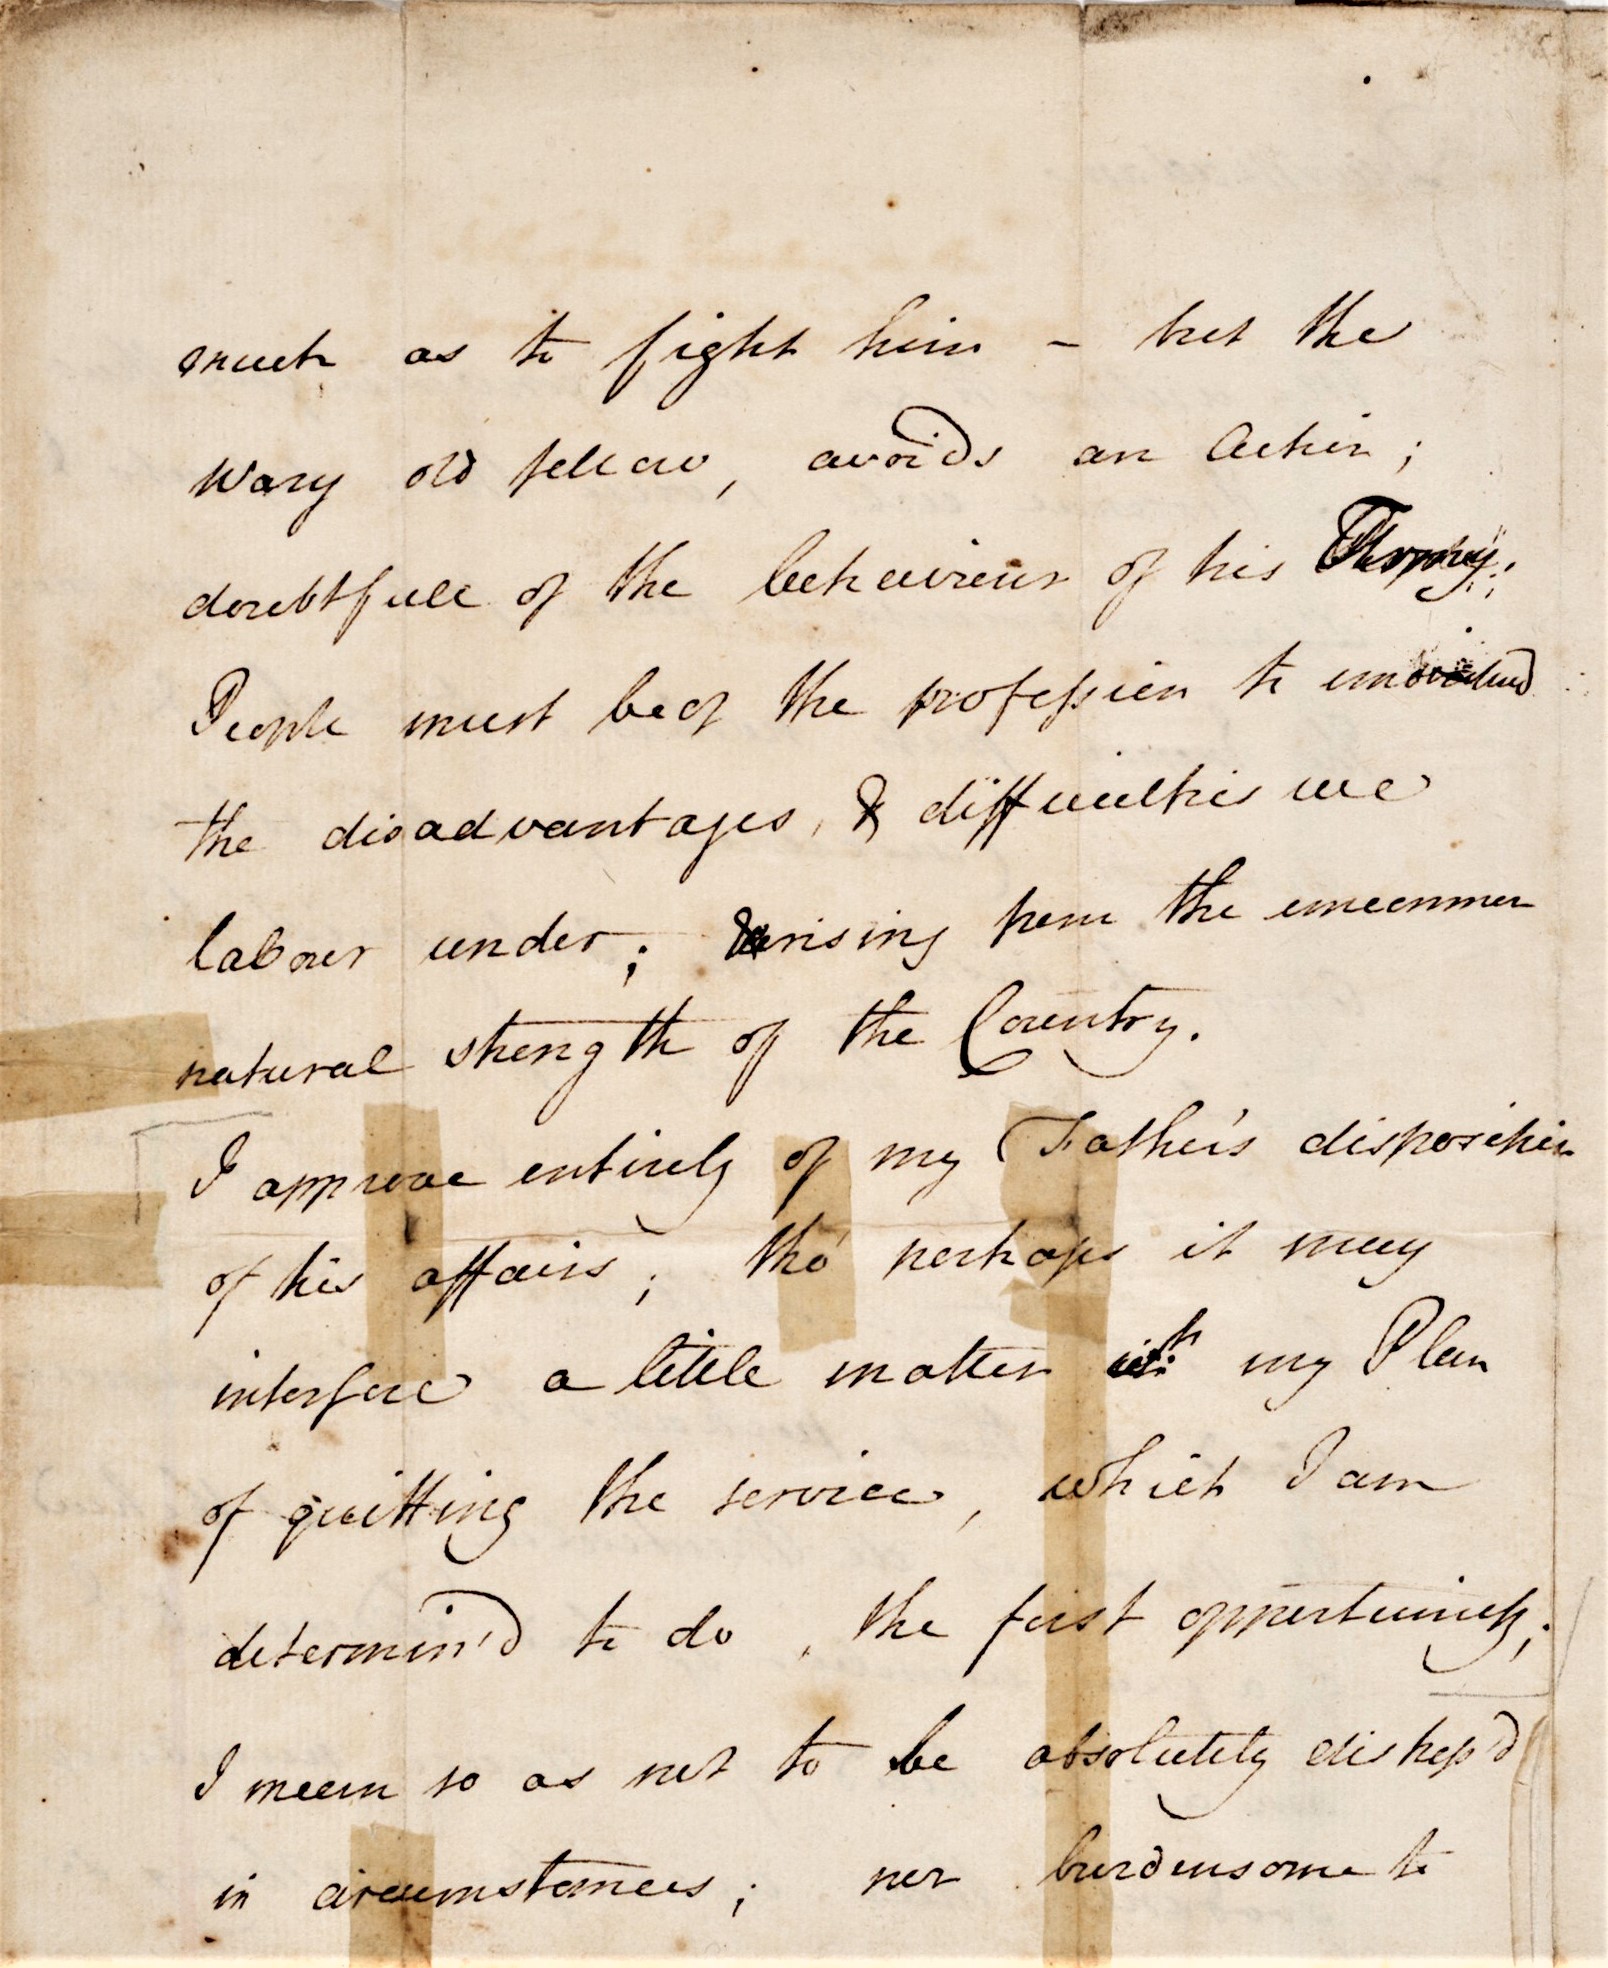 much as to fight him - but the
wary old fellow, avoids an Action;
doubtfull of the behaviour of his
People must be of the profession to
the disadvantages, & difficulties we
labour under; arising from the uncommon
natural strength of the Country.
I approve entirely of my Father's disposition
of his affairs; tho' perhaps it may
interfere a little matter wth my Plan
of quitting the service, which I am
determin'd to do, the first opportunity;
I mean so as not to be absolutely distress'd
in circumstances; nor burdensome to